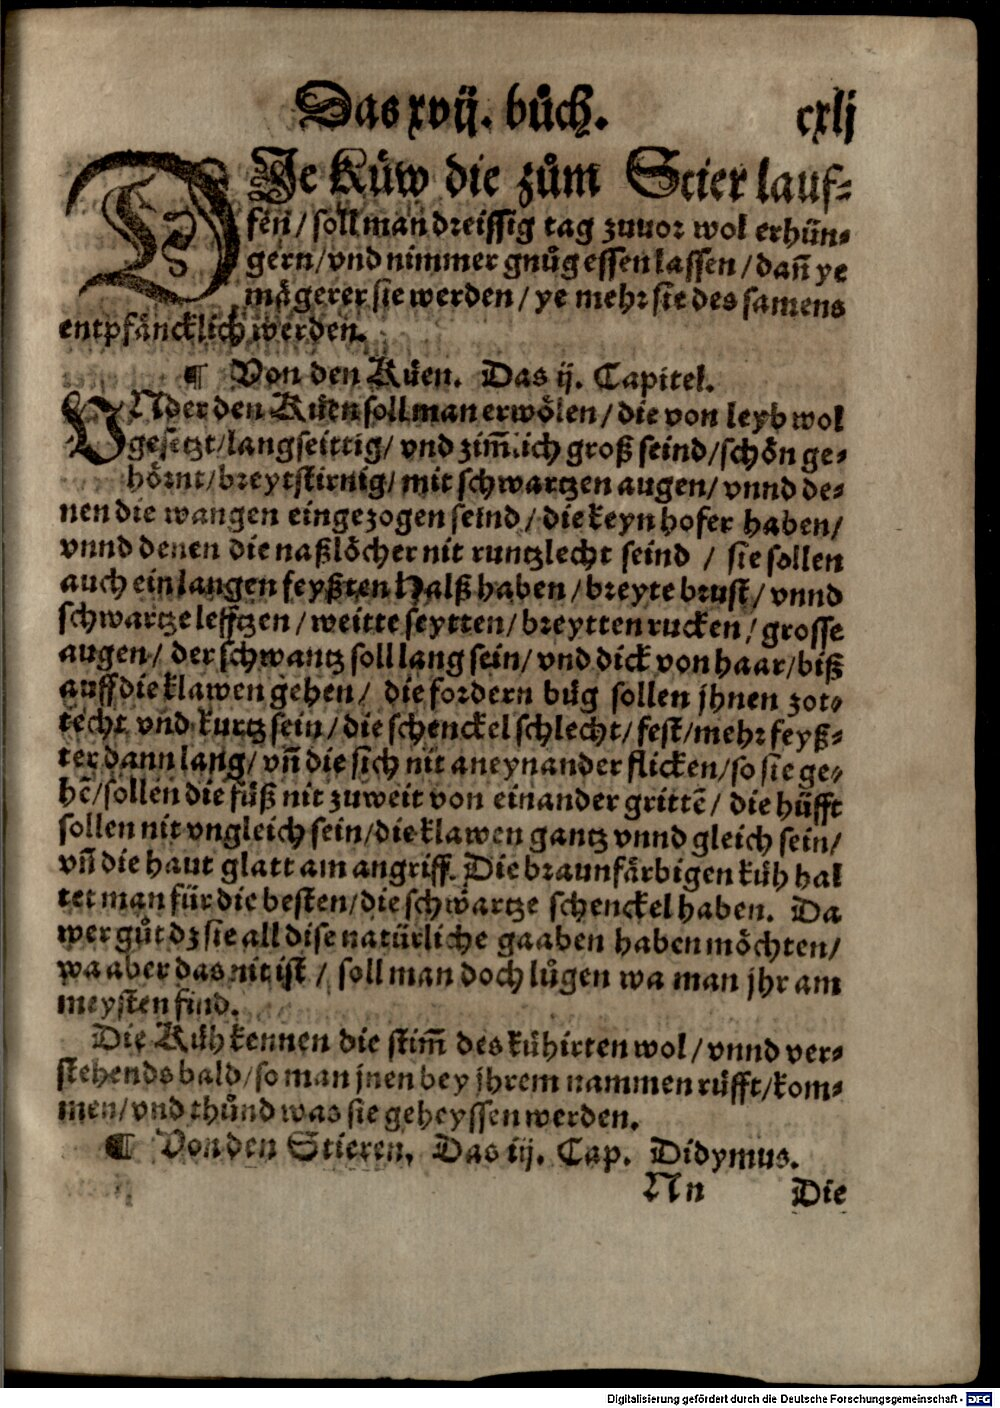 Das xvij. bůch. cxlj
DJe Kůw die zům Stier lauf⸗
fen / soll man dreissig tag zuuor wol erhün⸗
gern / vnd nimmer gnůg essen lassen / dañ ye
mägerer sie werden / ye mehr sie des samens
entpfäncklich werden.
¶ Von den Küen. Das ij. Capitel.
VNder den Küen soll man erwölen / die von leyb wol
gesetzt / langseittig / vnd zim̃lich groß seind / schön ge⸗
hörnt / breytstirnig / mit schwartzen augen / vnnd de⸗
nen die wangen eingezogen seind / die keyn hofer haben /
vnnd denen die naßlöcher nit runtzlecht seind / sie sollen
auch ein langen feyßten Halß haben / breyte brust / vnnd
schwartze lefftzen / weitte seytten / breytten rucken / grosse
augen / der schwantz soll lang sein / vnd dick von haar / biß
auff die klawen gehen / die fordern büg sollen jhnen zot⸗
techt vnd kurtz sein / die schenckel schlecht / fest / mehr feyß⸗
ter dann lang / vñ die sich nit aneynander flicken / so sie ge⸗
hē / sollen die füß nit zuweit von einander grittē / die hüfft
sollen nit vngleich sein / die klawen gantz vnnd gleich sein /
vñ die haut glatt am angriff. Die braunfärbigen küh hal
tet man für die besten / die schwartze schenckel haben. Da
wer gůt dz sie all dise natürliche gaaben haben möchten /
wa aber das nit ist / soll man doch lůgen wa man jhr am
meysten find.
Die Küh kennen die stim̃ des kühirten wol / vnnd ver⸗
stehends bald / so man jnen bey jhrem nammen rüfft / kom⸗
men / vnd thůnd was sie geheyssen werden.
¶ Von den Stieren. Das iij. Cap. Didymus.
Nn Die
Digitalisierung gefördert durch die Deutsche Forschungsgemeinschaft - DFG